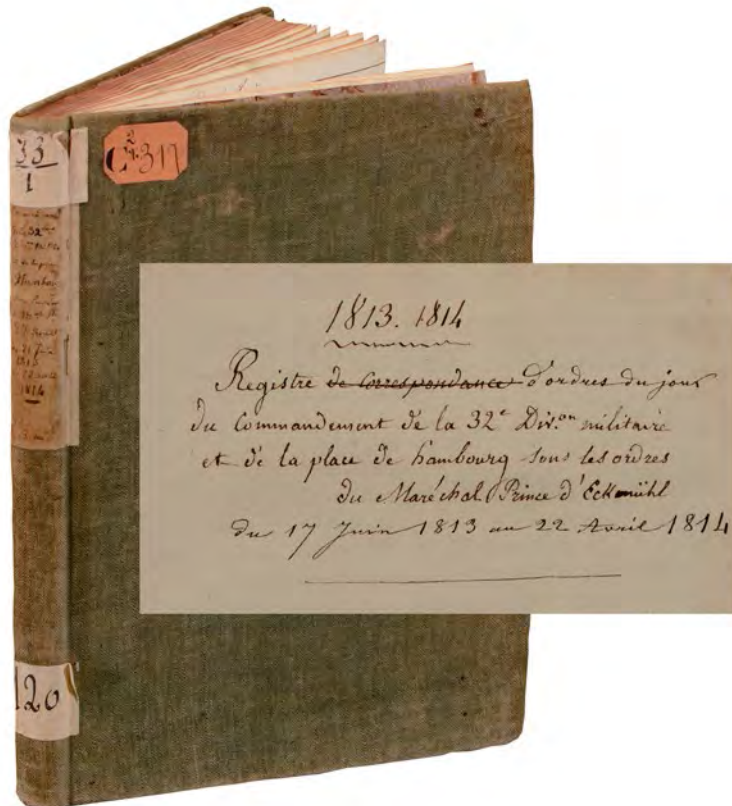 33
1
C² 317
32ᵐᵉ
1813
1814
120
1813. 1814
Registre de Correspondance d'ordres du jour
du Commandement de la 32ᵉ Div.ᵒⁿ militaire
et de la place de hambourg sous les ordres
du Maréchal Prince d'Eckmühl
du 17 Juin 1813 au 22 Avril 1814